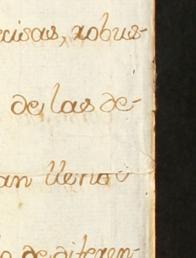 cisas, robus-
de las de-
an lleno
de diferen-